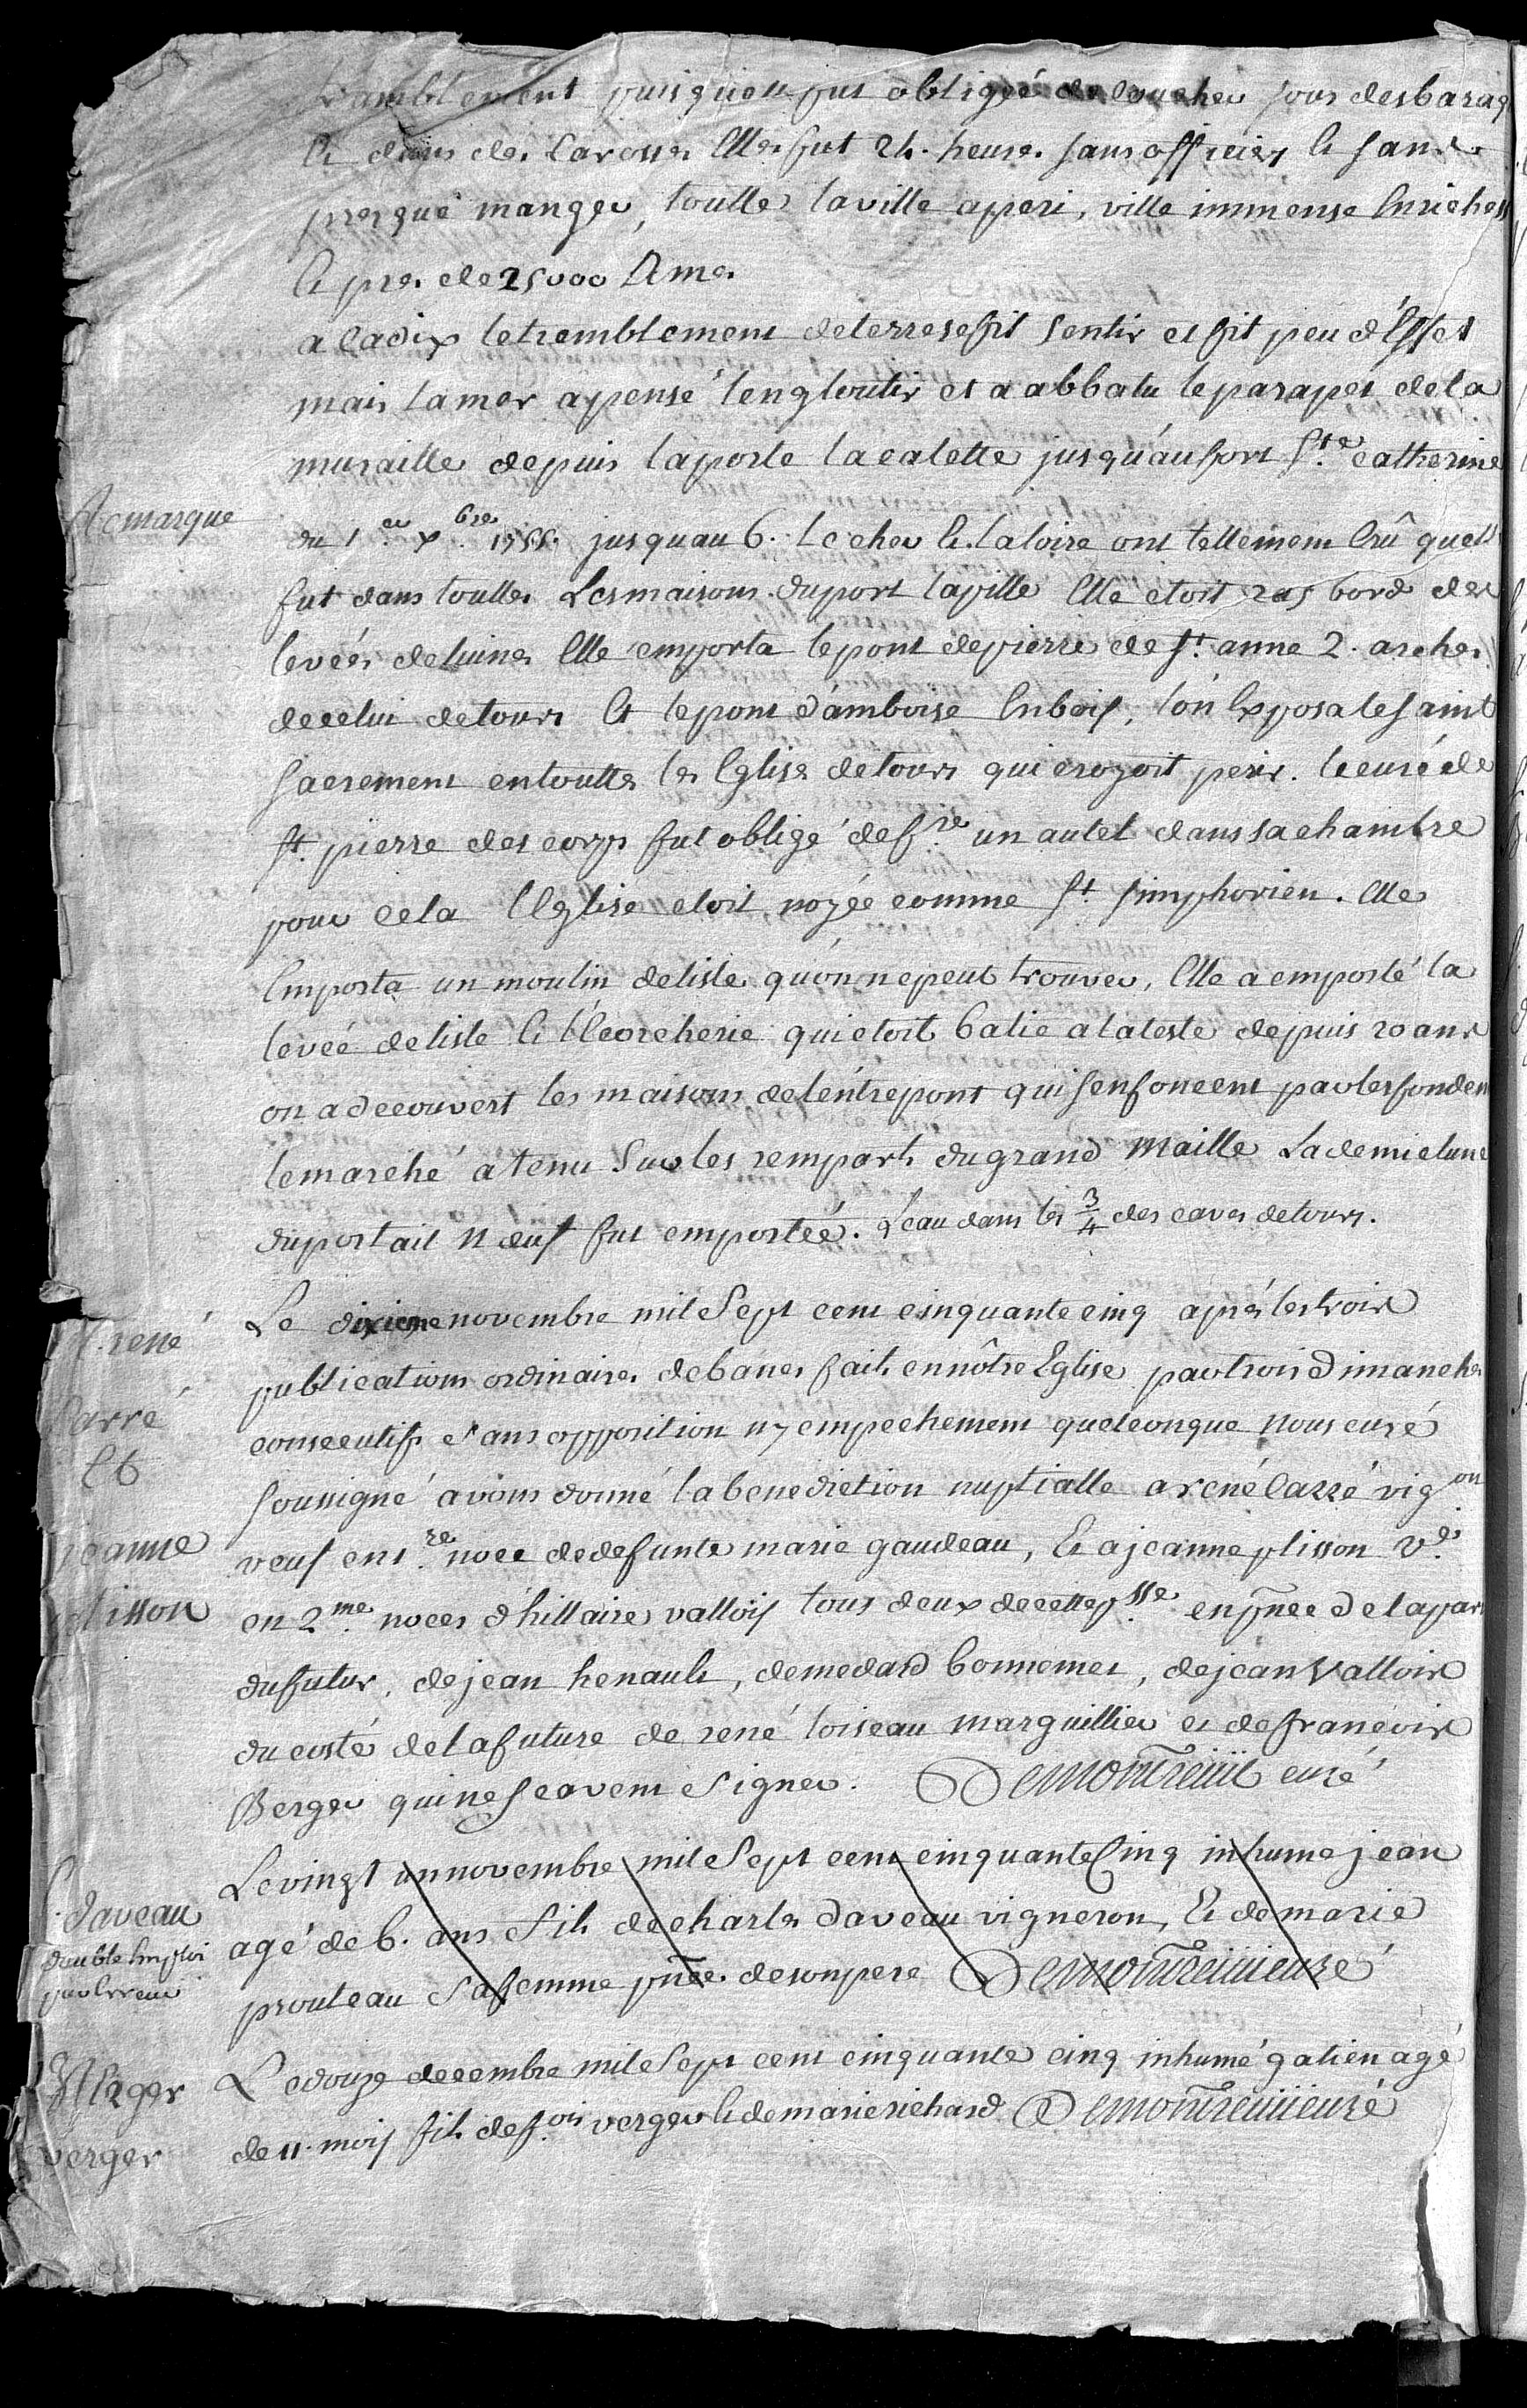 tremblement puisquelle fut obligée de coucher sous des baraq
et dans des Carosses. Elle fut 24. heures sans officiers et sans
presque manger, toutte la ville a peri, ville immense En riches
et pres de 25000 Ames
a Cadix le tremblement de terre se fit Sentir et fit peu d'Effet
mais la mer a pensé l'engloutir et a abbatu le parapet de la
muraille depuis la porte la calette jusqu'au fort Ste. Catherine
Remarque
du 1er. xbre. 1755. jusquau 6. le cher et la loire ont tellement Crû quell
fut dans touttes Les maisons du port la ville Elle etoit ras bord des
levées de luines Elle emporta le pont de pierre de St. anne 2. arches
de celui de tours Et le pont d'amboise En bois, l'on Exposa le Saint
Sacrement en touttes les Eglises de tours qui croyoit perir. le curé de
St. pierre des corps fut obligé de fre. un autel dans sa chambre
pour cela l'Eglise etoit noyée comme St. Simphorien. Elle
Emporta un moulin de lisle qu'on ne peut trouver, Elle a emporté la
levée de lisle et l'Ecorcherie qui etoit batie a la teste depuis 20 ans
on a decouvert les maisons de l'entrepont qui s'enfoncent par les fondem
le marché a tenu Sur les remparts du grand Maille La demie lune
du portail Neuf fut emportée. L'eau dans les 3/4 des caves de tours.
M. rené
Carré
Et
jeanne
plisson
Le dixieme novembre mil Sept cent cinquante cinq aprés les trois
publications ordinaires de bancs faits en nôtre Eglise par trois dimanches
consecutifs Sans opposition ny empechement quelconque Nous curé
Soussigné avons donné la benediction nuptialle a rené Carré vigon
veuf en 1re. noce de defunte marie gaudeau, Et a jeanne plisson ve.
en 2me. noces d'hillaire vallois tous deux de cette psse. en pnce de la part
du futur, de jean henault, de medard bonnemer, de jean Vallois
du costé de la future de rené loiseau Marguillier et de francois
Berger qui ne Scavent Signer. Demontreüil curé
S. daveau
double Employ
par Erreur
Le vingt un novembre mil Sept cent cinquante Cinq inhumé jean
agé de 6. ans Fils de charles daveau vigneron, Et de marie
prouteau Sa femme pnce. de son pere Demontreüil curé
S. verger
verger
Le douze decembre mil Sept cent cinquante cinq inhumé gatien agé
de 11. mois fils de fois verger Et de marie richard Demontreüil curé